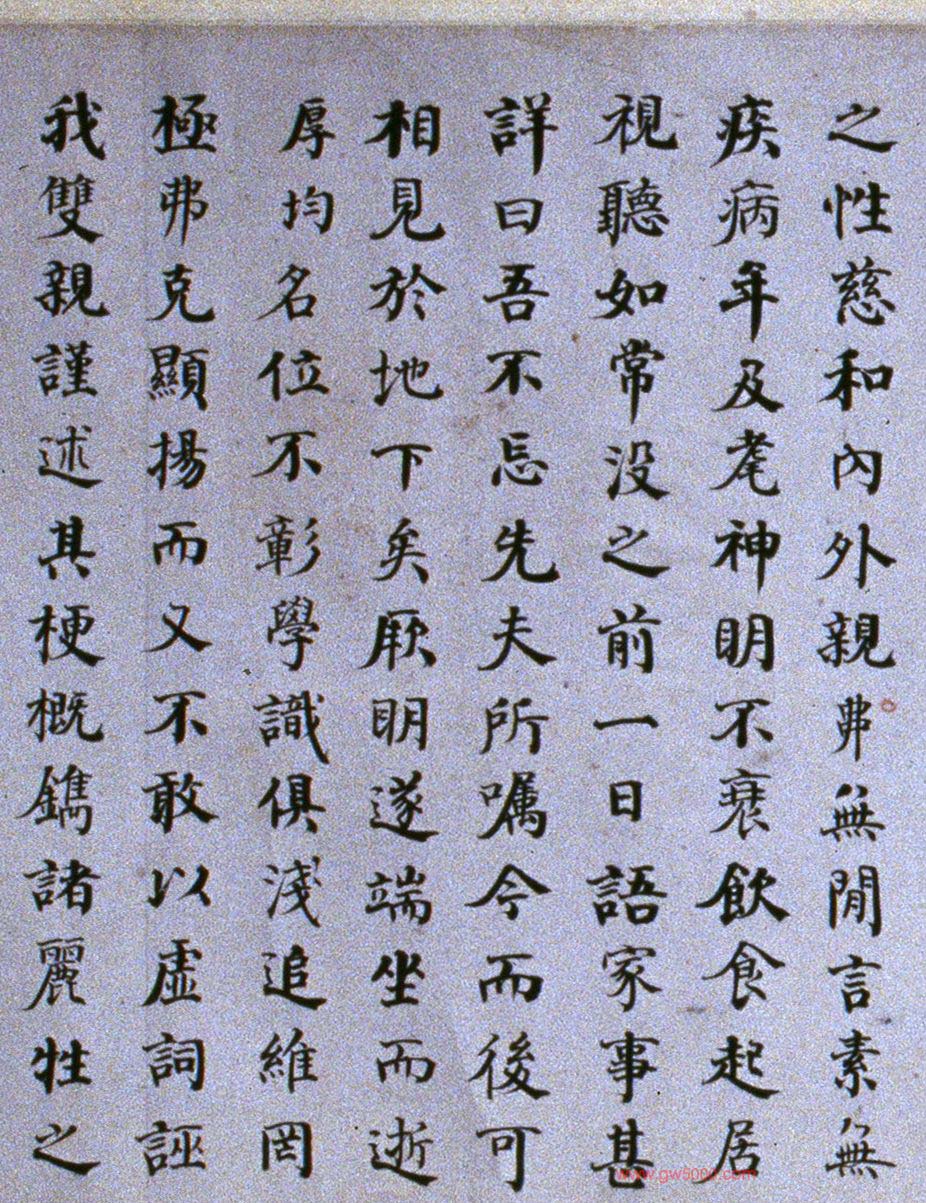 之性慈和內外親弗無閒言素無
疾病年及耄神明不衰飲食起居
視聽如常没之前一日語家事甚
詳曰吾不忘先夫所囑今而後可
相見於地下矣厥明遂端坐而逝
厚均名位不彰學識俱淺追維罔
極弗克顯揚而又不敢以虛詞誣
我雙親謹述其梗概鐫諸麗牲之